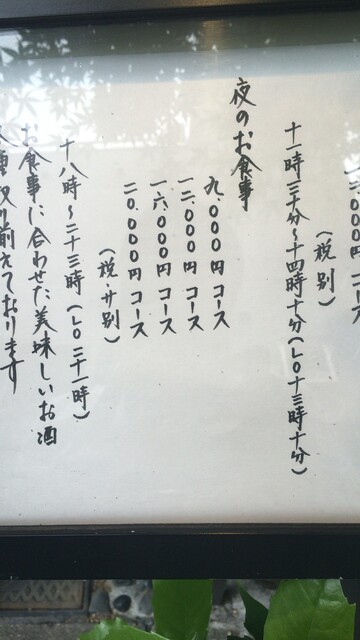 二.〇〇〇円コース
(税別)
十一時三十分〜十四時十分(LO十三時十分)
夜のお食事
九.〇〇〇円コース
一二.〇〇〇円コース
一六.〇〇〇円コース
二〇.〇〇〇円コース
(税・サ別)
十八時〜二十三時(LO二十一時)
お食事に合わせた美味しいお酒
各種取り揃えております